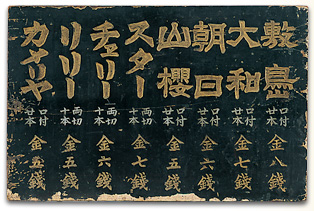 敷島 口付 廿本 金八錢
大和 口付 廿本 金七錢
朝日 口付 廿本 金六錢
山櫻 口付 廿本 金五錢
スター 両切 十本 金七錢
チェリー 両切 十本 金六錢
リリー 両切 十本 金五錢
カメリヤ 口付 廿本 金五錢